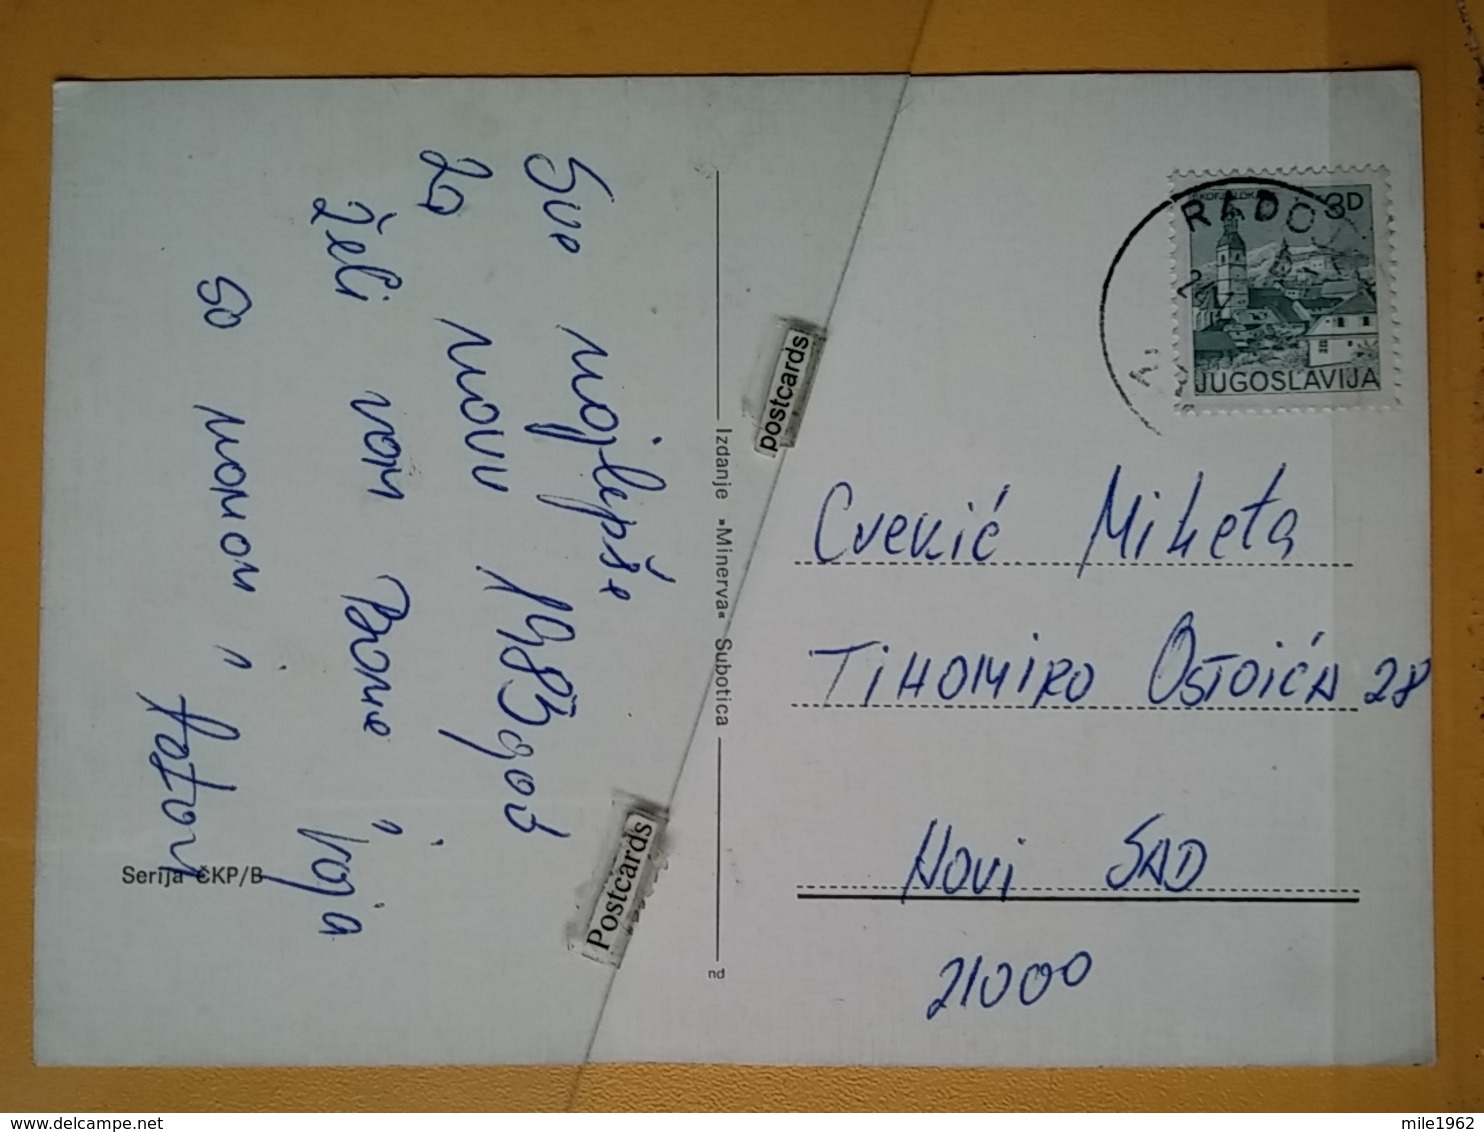 Sve najlepše
za novu 1983 god
želi vam Bane i Voja
sa mamom i tatom
Serija ČKP/B
Izdanje »Minerva« Subotica
nd
postcards
Postcards
3D
JUGOSLAVIJA
Cvekić Mileta
TIHOMIRA OSTOIĆA 28
NOVI SAD
21000
mile1962